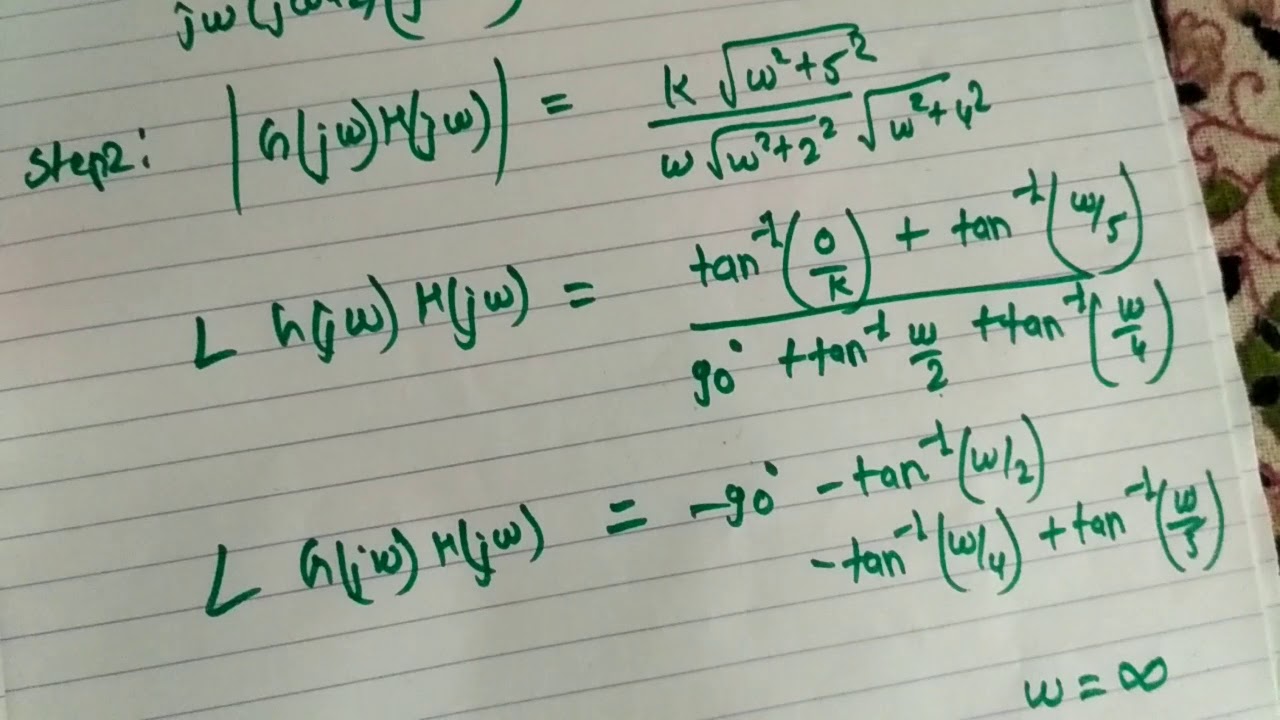 jω(jω+2)(j
Step2: |G(jω)H(jω)| = K √(ω²+5²) / ω √(ω²+2²) √(ω²+4²)
∠ G(jω) H(jω) = tan⁻¹(0/K) + tan⁻¹(ω/5) / 90° + tan⁻¹ ω/2 + tan⁻¹(ω/4)
∠ G(jω) H(jω) = -90° - tan⁻¹(ω/2)
- tan⁻¹(ω/4) + tan⁻¹(ω/5)
ω = ∞